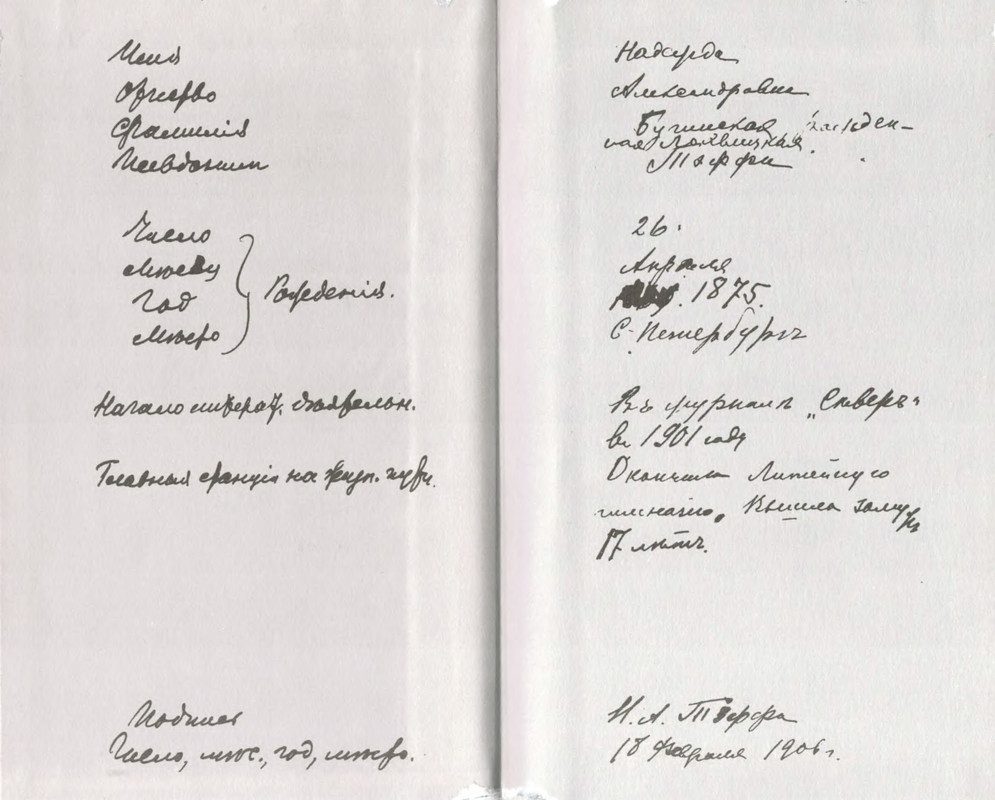 Имя
Отчество
Фамилія
Псевдоним
Число
Мѣсяц
Год
Мѣсто
Рожденія.
Начало литерат. дѣятельн.
Главныя станціи на жизн. пути.
Подпись
Число, мѣс., год, мѣсто.
Надежда
Александровна
Бучинская рожден-
ная Лохвицкая.
Тэффи
26.
Апрѣля
1875.
С-Петербургъ
Въ журналѣ „Сѣверъ“
въ 1901 году
Окончила Литейную
гимназію, Вышла замужъ
17 лѣтъ.
Н. А. Тэффи
18 Февраля 1906 г.